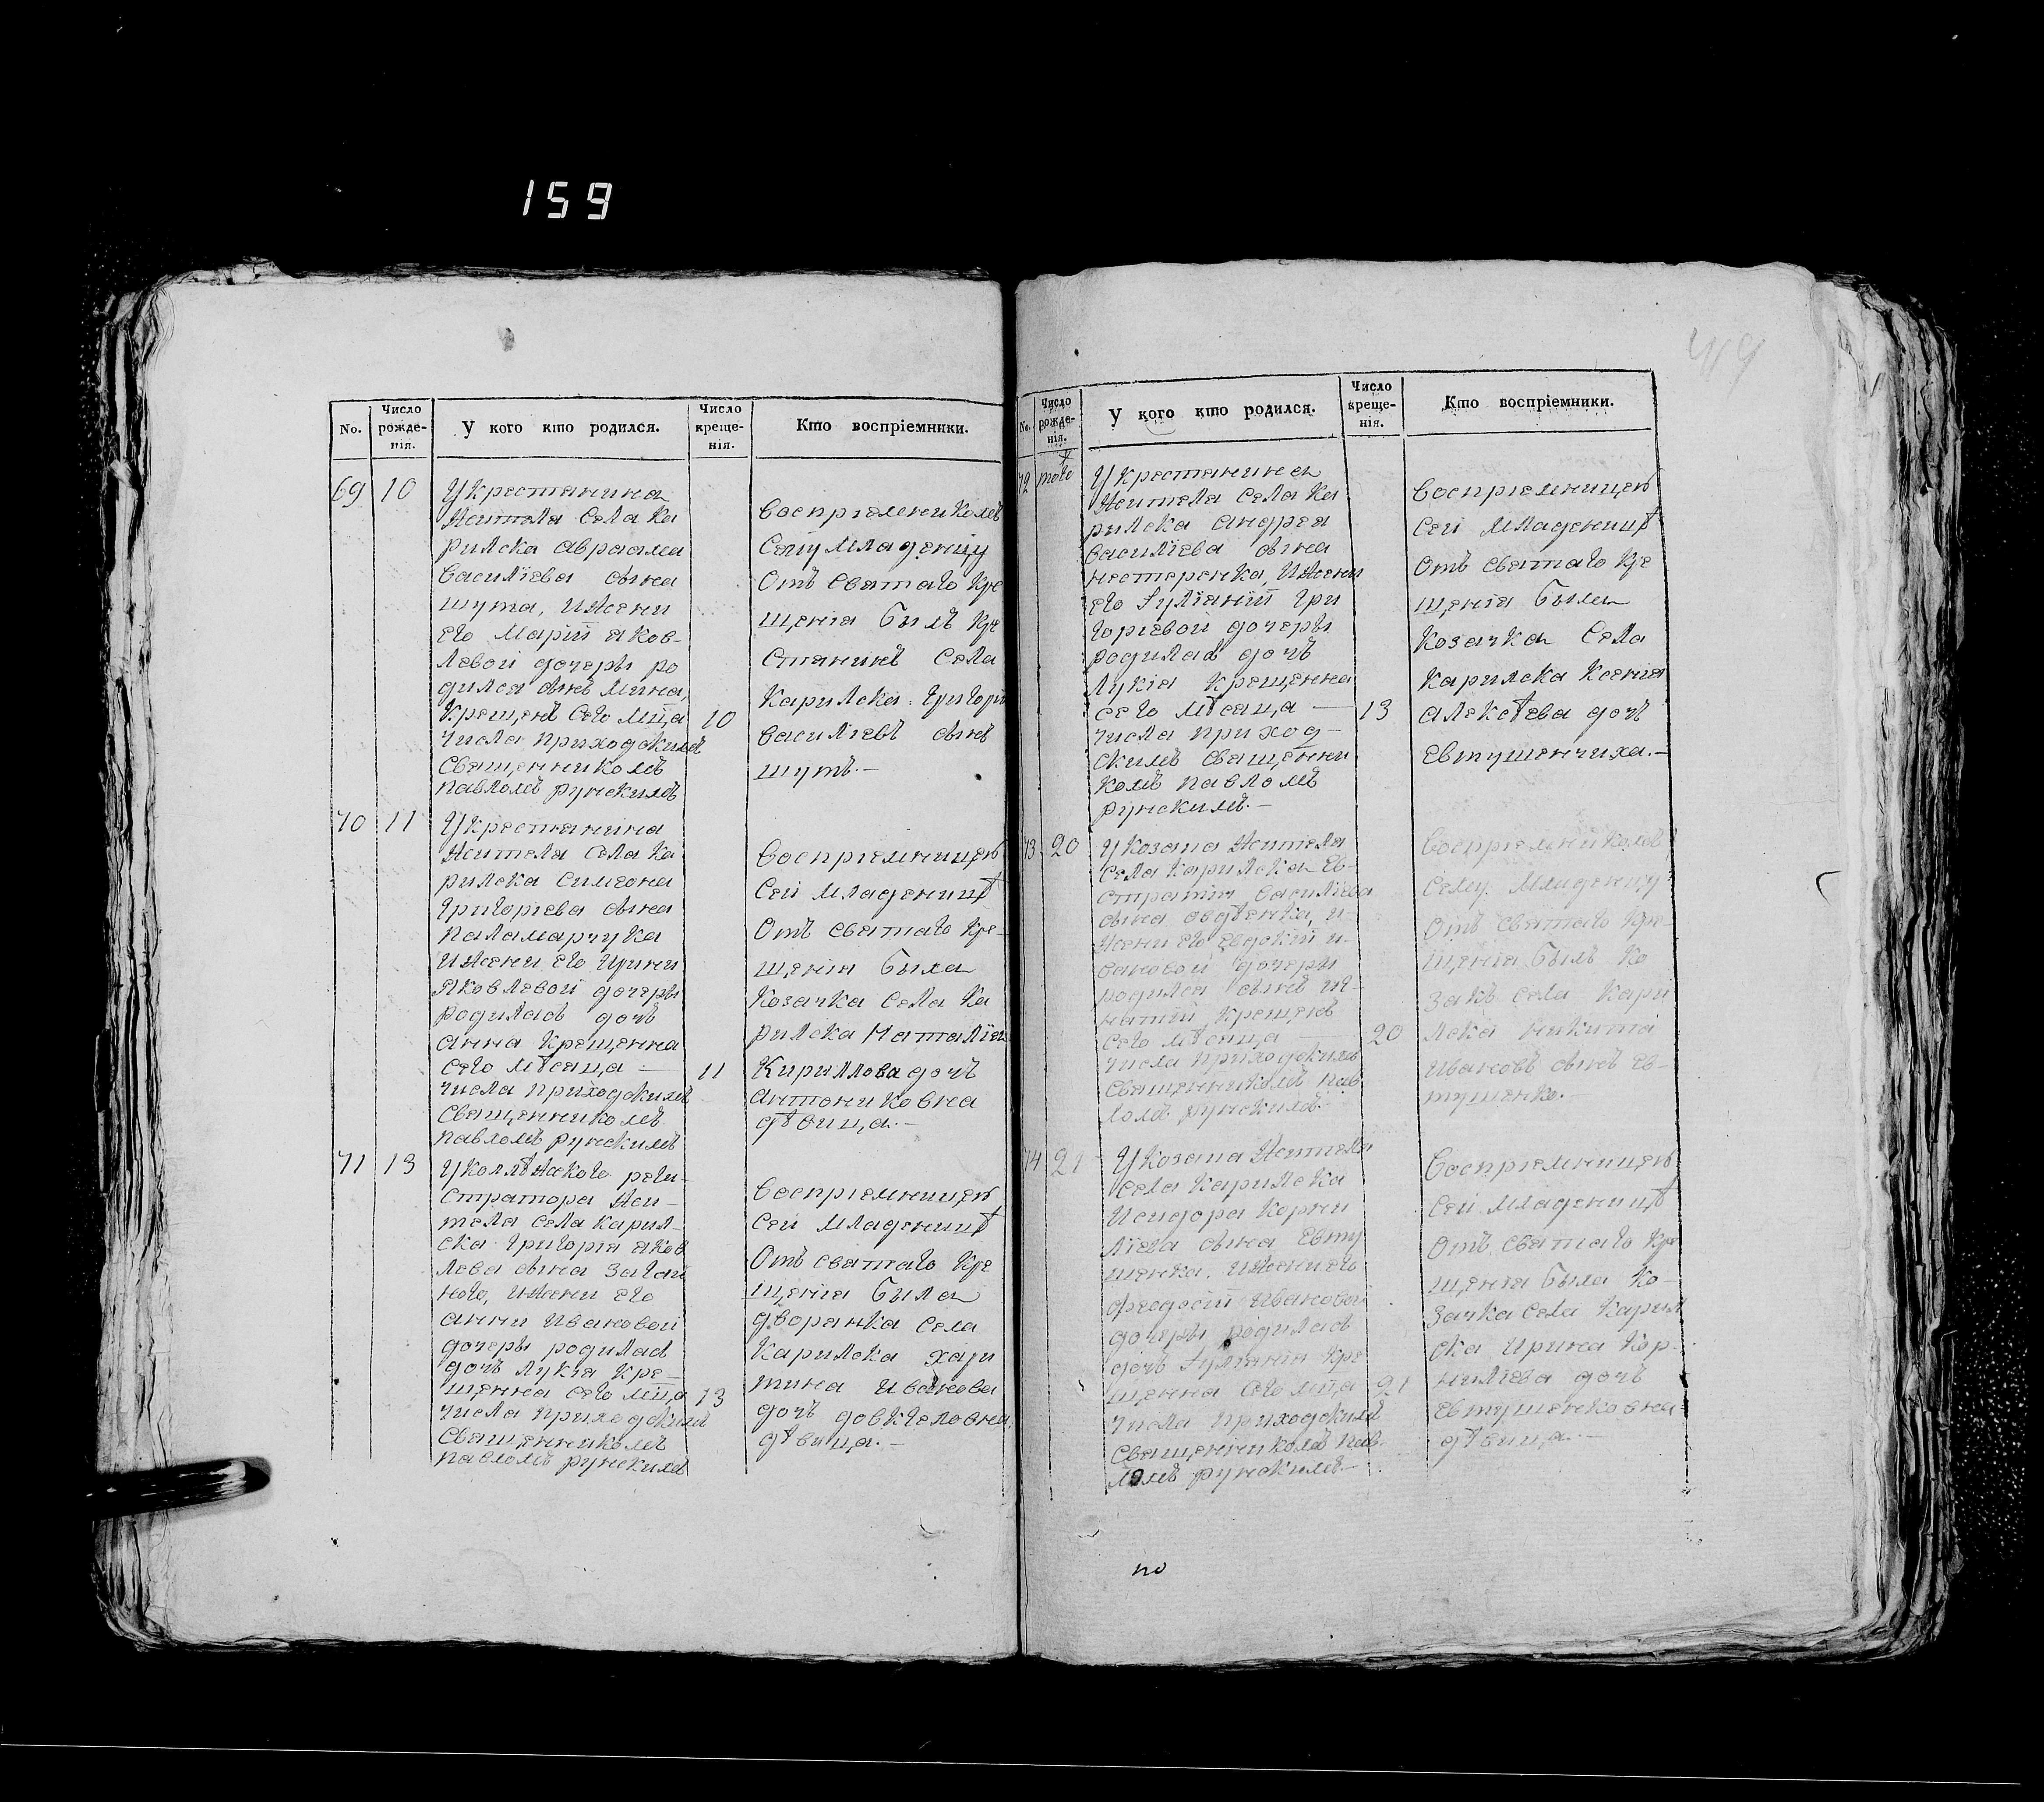 159
No.
Число рожде-нія.
У кого кто родился.
Число креще-нія.
Кто воспріемники.
69 10
У крестянина
жителя села Ка
рилска Авраама
Василіева сына
Шута, и жени
его Маріи Яков-
левой дочеры ро
дился сынъ Мина,
крещенъ сего мца 10
числа приходскимъ
священникомъ
Павломъ Рунскимъ
воспріемникомъ
сему младенцу
отъ святаго кре
щенія былъ кре
стянинъ села
Карилска Григорій
Василіевъ сынъ
Шутъ.-
70 11
У крестянина
жителя села Ка
рилска Симеона
Григоріева сына
Паламарчука
и жени его Ирини
Яковлевой дочеры
родилась дочь
Анна крещенна
сего мѣсяца - 11
числа приходскимъ
священникомъ
Павломъ Рунскимъ
воспріемницею
сей младеницѣ
отъ святаго кре-
щенія была
козачка села Ка
рилска Наталія
Кириллова дочь
Антониковна
дѣвица.-
71 13
У коллѣжского реги-
стратора жи-
теля села Карил-
ска Григорія Яков
лева сына Загай
ного, и жени его
Анни Ивановой
дочеры родилась
дочь Лукія кре-
щенна сего мца 13
числа приходскимъ
священникомъ
Павломъ Рунскимъ
воспріемницею
сей младеницѣ
отъ святаго кре
щенія была
дворянка села
Карилска Хари
тина Иванова
дочь
дѣвица.-
No.
Число рожде-нія.
У кого кто родился.
Число креще-нія.
Кто воспріемники.
72 того
У крестянина
жителя села Ка
рилска Андрея
Василіева сына
Нестеренка, и жени
его Іуліаніи Гри
горіевой дочеры
родилась дочь
Лукія крещенна
сего мѣсяца - 13
числа приход-
скимъ священни
комъ Павломъ
Рунскимъ.-
воспріемницею
сей младеницѣ
отъ святаго кре
щенія была
козачка села
Карилска Ксенія
Алексѣева дочь
Евтушенчиха.-
73 20
У козака жителя
села Карилска Ев-
стратія Василіева
сына Овдѣенка, и
жени его Евдокіи И-
вановой дочеры
родился сынъ Иг-
натій крещенъ
сего мѣсяца 20
числа приходскимъ
священникомъ Пав
ломъ Рунскимъ.-
воспріемникомъ
сему младенцу
отъ святаго кре-
щенія былъ ко
закъ села Кари
лска Никита
Ивановъ сынъ Ев-
тушенко.-
74 21
У козака жителя
села Карилска
Исидора Корни
ліева сына Евту
шенка, и жени его
Феодосіи Ивановой
дочеры родилась
дочь Іуліанія кре
щенна сего мца 21
числа приходскимъ
священникомъ Пав-
ломъ Рунскимъ.-
воспріемницею
сей младеницѣ
отъ святаго кре
щенія была ко-
зачка села Карил
ска Ирина Кор-
ниліева дочь
Евтушенковна
дѣвица.-
по